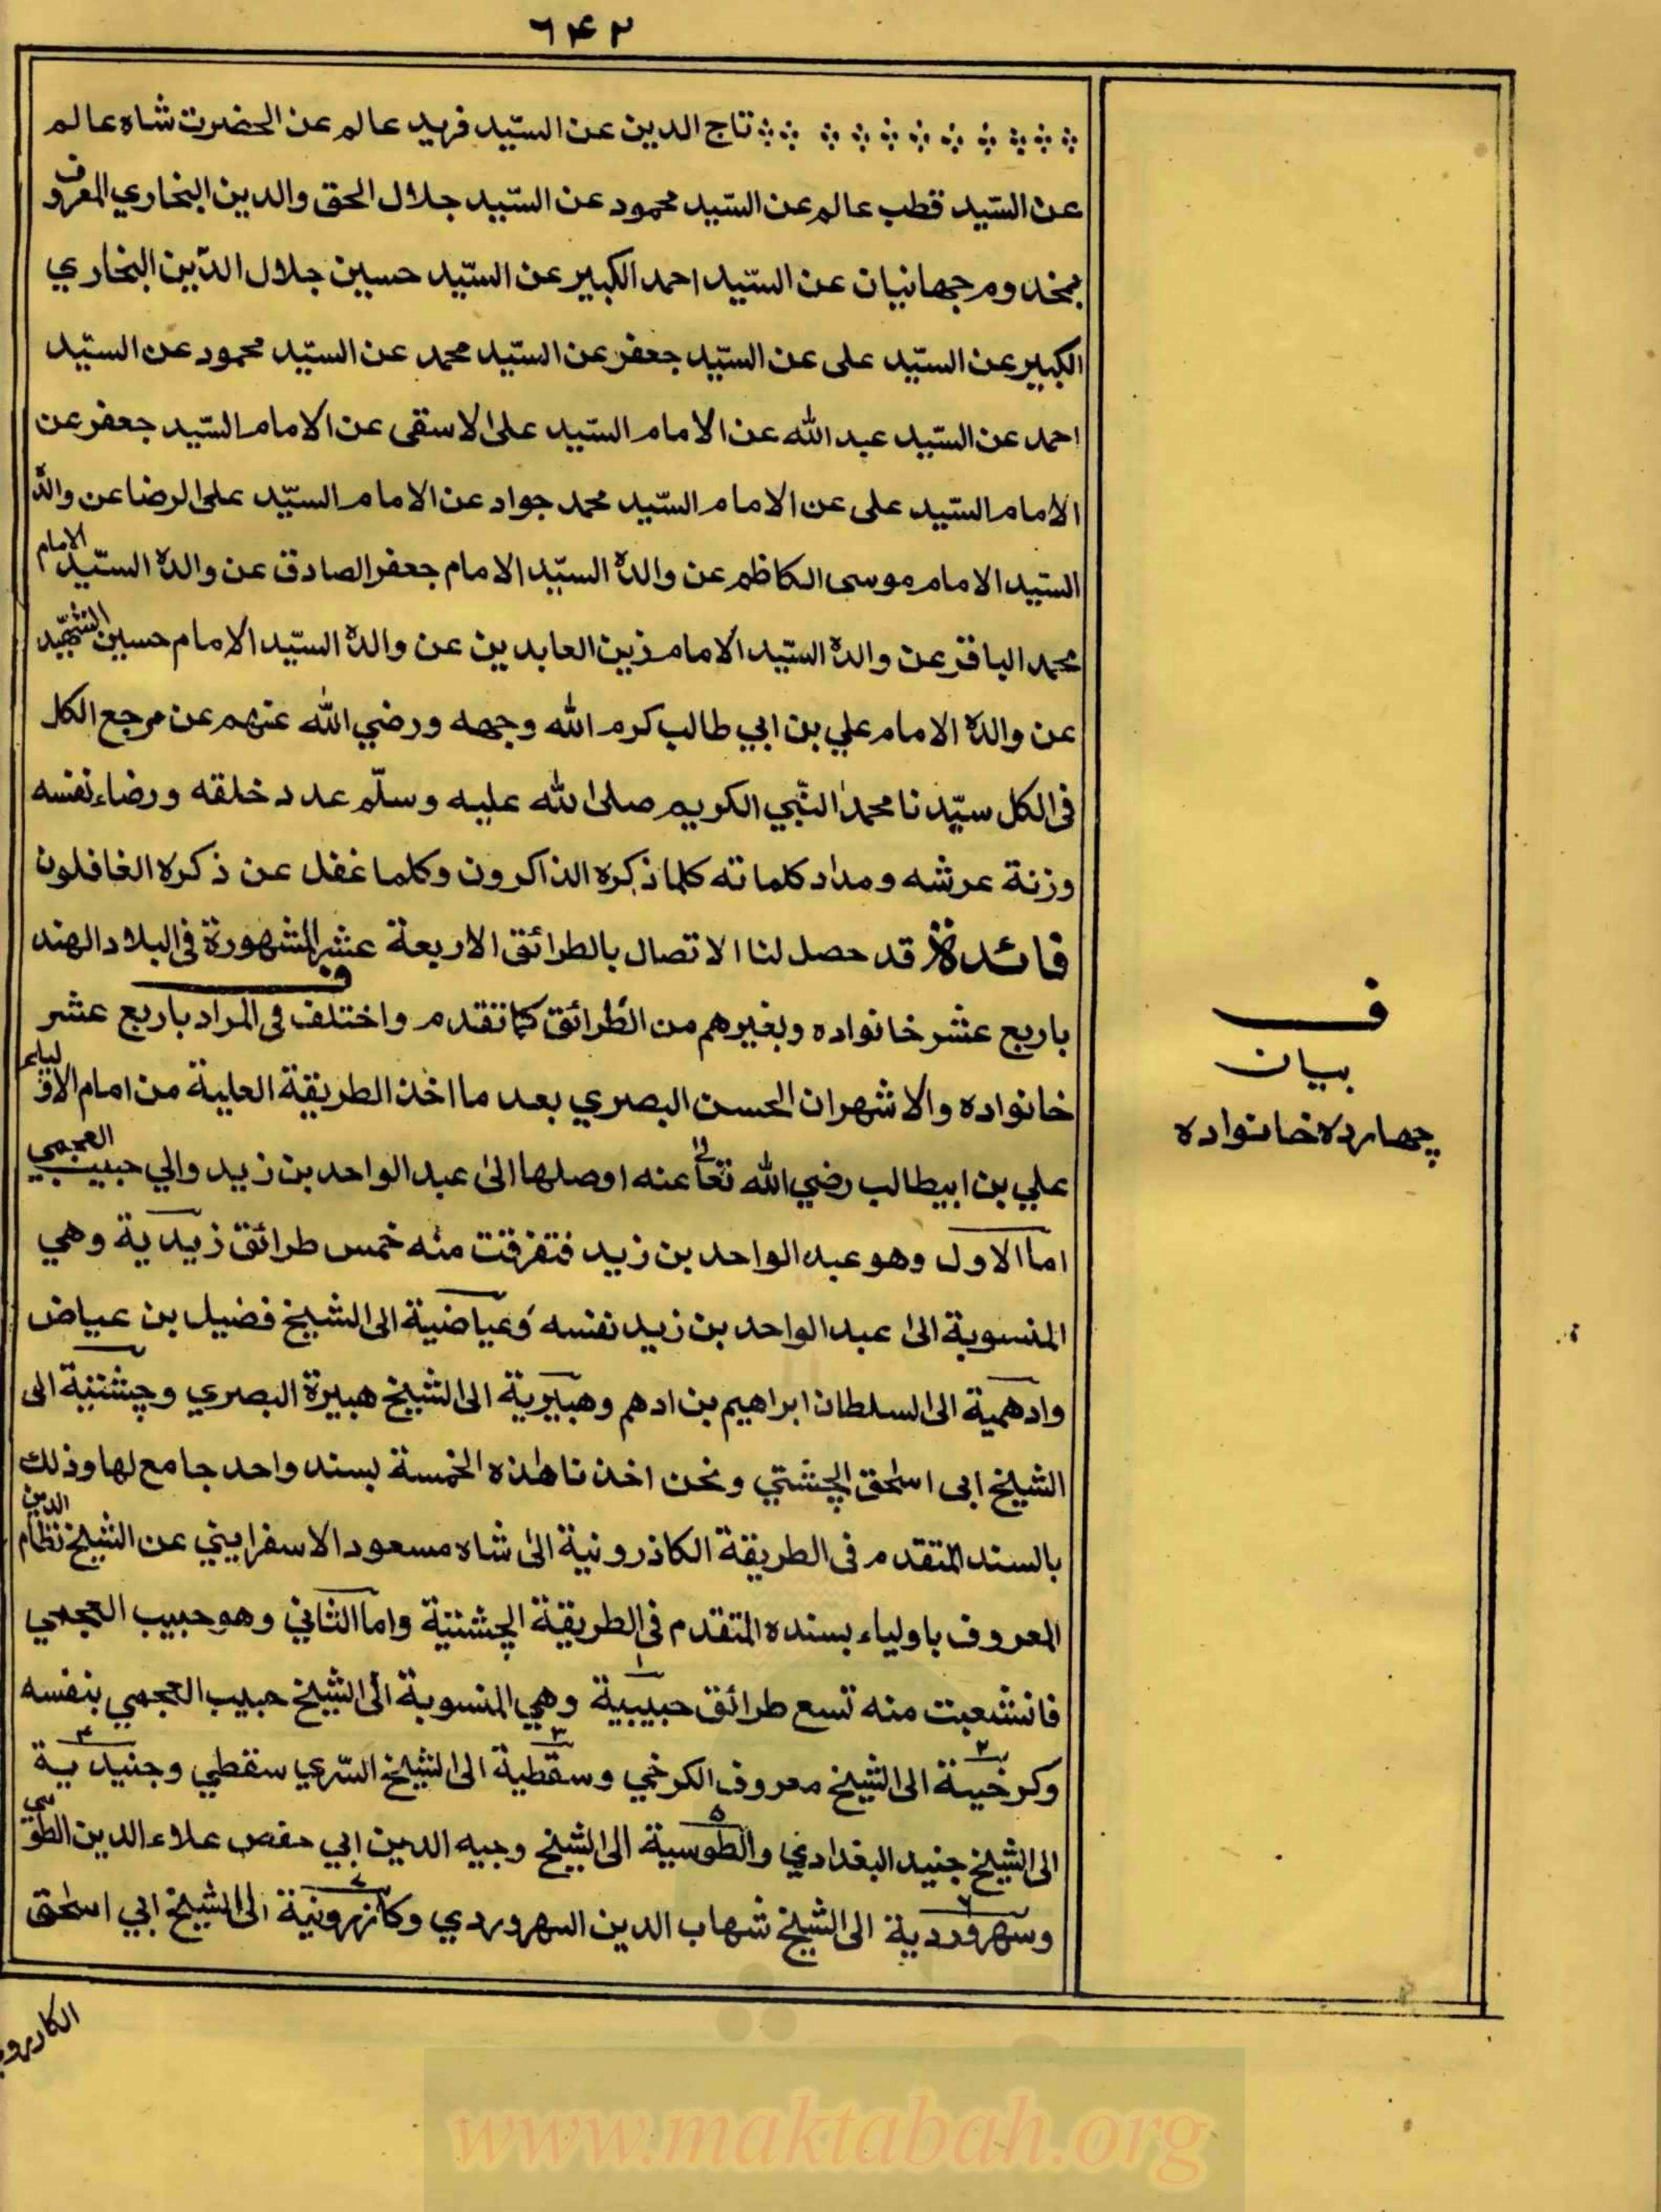 ٦٤٢
تاج الدين عن السيّد فريد عالم عن الحضرت شاه عالم
عن السيّد قطب عالم عن السيّد محمود عن السيّد جلال الحق والدين البخاري المعروف
بمخدوم جهانيان عن السيّد احمد الكبير عن السيّد حسين جلال الدّين البخاري
الكبير عن السيّد على عن السيّد جعفر عن السيّد محمد عن السيّد محمود عن السيّد
احمد عن السيّد عبد الله عن الامام السيّد على الاسقى عن الامام السيّد جعفر عن
الامام السيّد على عن الامام السيّد محمد جواد عن الامام السيّد على الرضا عن والده
السيّد الامام موسى الكاظم عن والده السيّد الامام جعفر الصادق عن والده السيّد الامام
محمد الباقر عن والده السيّد الامام زين العابدين عن والده السيّد الامام حسين الشهيد
عن والده الامام علي بن ابي طالب كرم الله وجهه ورضي الله عنهم عن مرجع الكل
فى الكل سيّدنا محمد النّبي الكريم صلى الله عليه وسلّم عدد خلقه ورضاء نفسه
وزنة عرشه ومداد كلماته كلما ذكره الذاكرون وكلما غفل عن ذكره الغافلون
فائدة قد حصل لنا الاتصال بالطرائق الاربعة عشر المشهورة فى البلاد الهند
باربع عشر خانواده وبغيرهم من الطرائق كما تقدم واختلف فى المراد باربع عشر
خانواده والاشهر ان الحسن البصري بعد ما اخذ الطريقة العلية من امام الاولياء
علي بن ابيطالب رضي الله تعالى عنه اوصلها الى عبد الواحد بن زيد والي حبيب العجمي
اما الاول وهو عبد الواحد بن زيد فتفرقت منه خمس طرائق زيدية وهي
المنسوبة الى عبد الواحد بن زيد نفسه وعياضية الى الشيخ فضيل بن عياض
وادهمية الى السلطان ابراهيم بن ادهم وهبيرية الى الشيخ هبيرة البصري وچشتية الى
الشيخ ابى اسحٰق الچشتي ونحن اخذنا هٰذه الخمسة بسند واحد جامع لها وذلك
بالسند المتقدم فى الطريقة الكاذرونية الى شاه مسعود الاسفراييني عن الشيخ نظام الدين
المعروف باولياء بسنده المتقدم فى الطريقة الچشتية واما الثاني وهو حبيب العجمي
فانشعبت منه تسع طرائق حبيبية ١ وهي المنسوبة الى الشيخ حبيب العجمي بنفسه
وكرخية ٢ الى الشيخ معروف الكرخي وسقطية ٣ الى الشيخ السّري سقطي وجنيدية ٤
الى الشيخ جنيد البغدادي والطوسية ٥ الى الشيخ وجيه الدين ابي حفص علاء الدين الطوسي
وسهروردية ٦ الى الشيخ شهاب الدين السهروردي وكازرونية ٧ الى الشيخ ابي اسحٰق
ف
بيان
چهارده خانواده
www.maktabah.org